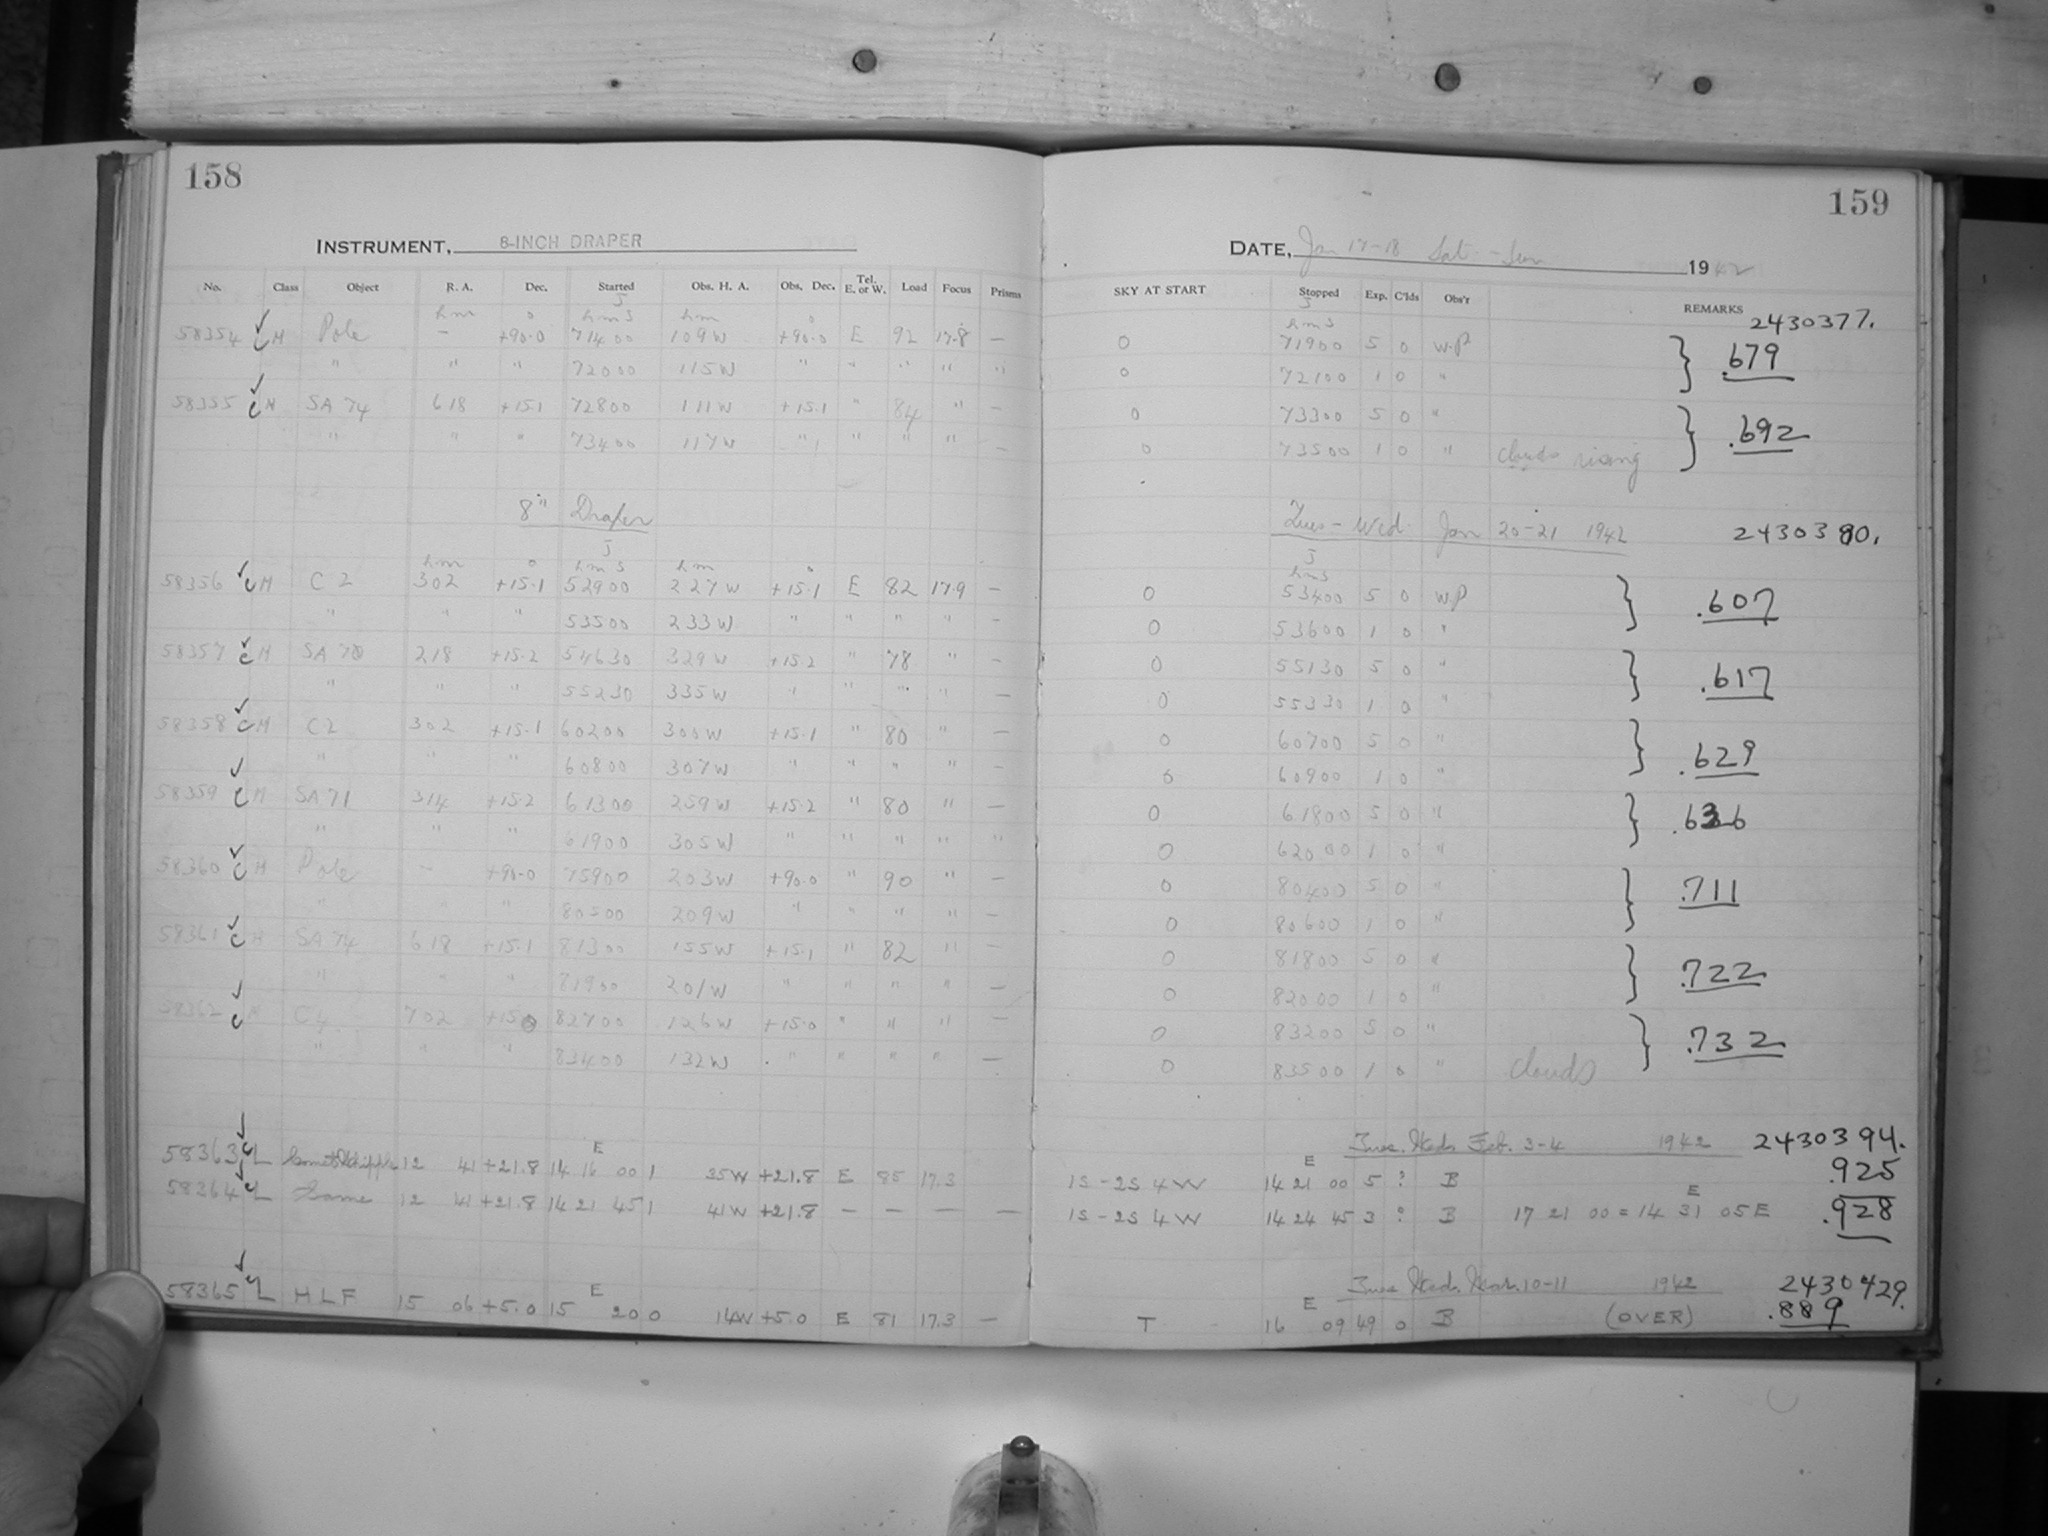 158
INSTRUMENT, 8-INCH DRAPER
No. Class Object R. A. Dec. Started Obs. H. A. Obs. Dec. Tel. E. or W. Load Focus Prisms
J
h m ° h m s h m °
58354 ✓ C H Pole — +90.0 71400 109W +90.0 E 92 17.8 —
" " " 72000 115W " " " " "
58355 ✓ C H SA 74 618 +15.1 72800 111W +15.1 " 84 " —
" " " 73400 117W " " " " —
8" Draper
J
h m ° h m s h m °
58356 ✓ C H C 2 302 +15.1 52900 227W +15.1 E 82 17.9 —
" " " 53500 233W " " " " —
58357 ✓ C H SA 70 218 +15.2 54630 329W +15.2 " 78 " —
" " " 55230 335W " " " " —
58358 ✓ C H C2 302 +15.1 60200 300W +15.1 " 80 " —
" " " 60800 307W " " " " —
58359 ✓ C H SA71 314 +15.2 61300 259W +15.2 " 80 " —
" " " 61900 305W " " " " "
58360 ✓ C H Pole — +90.0 75900 203W +90.0 " 90 " —
" " " 80500 209W " " " " —
58361 ✓ C H SA 74 618 +15.1 81300 155W +15.1 " 82 " —
" " " 81900 201W " " " " —
58362 ✓ C H C4 702 +15.0 82700 126W +15.0 " " " —
" " " 83400 132W " " " " —
58363 ✓ C L 12 41 +21.8 14 16 00 E 35W +21.8 E 85 17.3
58364 ✓ C L Same 12 41 +21.8 14 21 45 41W +21.8 — — — —
58365 ✓ C L HLF 15 06 +5.0 15 20 0 E 14W +5.0 E 81 17.3 —
159
DATE, Jan 17-18 Sat.-Sun 1942
SKY AT START Stopped Exp. C'lds Obs'r REMARKS
J
h m s 2430377.
0 71900 5 0 W.P } .679
0 72100 1 0 "
0 73300 5 0 " } .692
0 73500 1 0 " clouds rising
Tues-Wed Jan 20-21 1942 2430380.
J
h m s
0 53400 5 0 W.P } .607
0 53600 1 0 "
0 55130 5 0 " } .617
0 55330 1 0 "
0 60700 5 0 " } .629
0 60900 1 0 "
0 61800 5 0 " } .636
0 62000 1 0 "
0 80400 5 0 " } .711
0 80600 1 0 "
0 81800 5 0 " } .722
0 82000 1 0 "
0 83200 5 0 " } .732
0 83500 1 0 " Clouds
Tues. Weds. Feb. 3-4 1942 2430394.
1S-2S 4W 14 21 00 E 5 ? B .925
1S-2S 4W 14 24 45 3 ? B 17 21 00 = 14 31 05 E .928
Tues. Weds. Mar. 10-11 1942 2430429.
T 16 09 E 49 0 B (OVER) .889